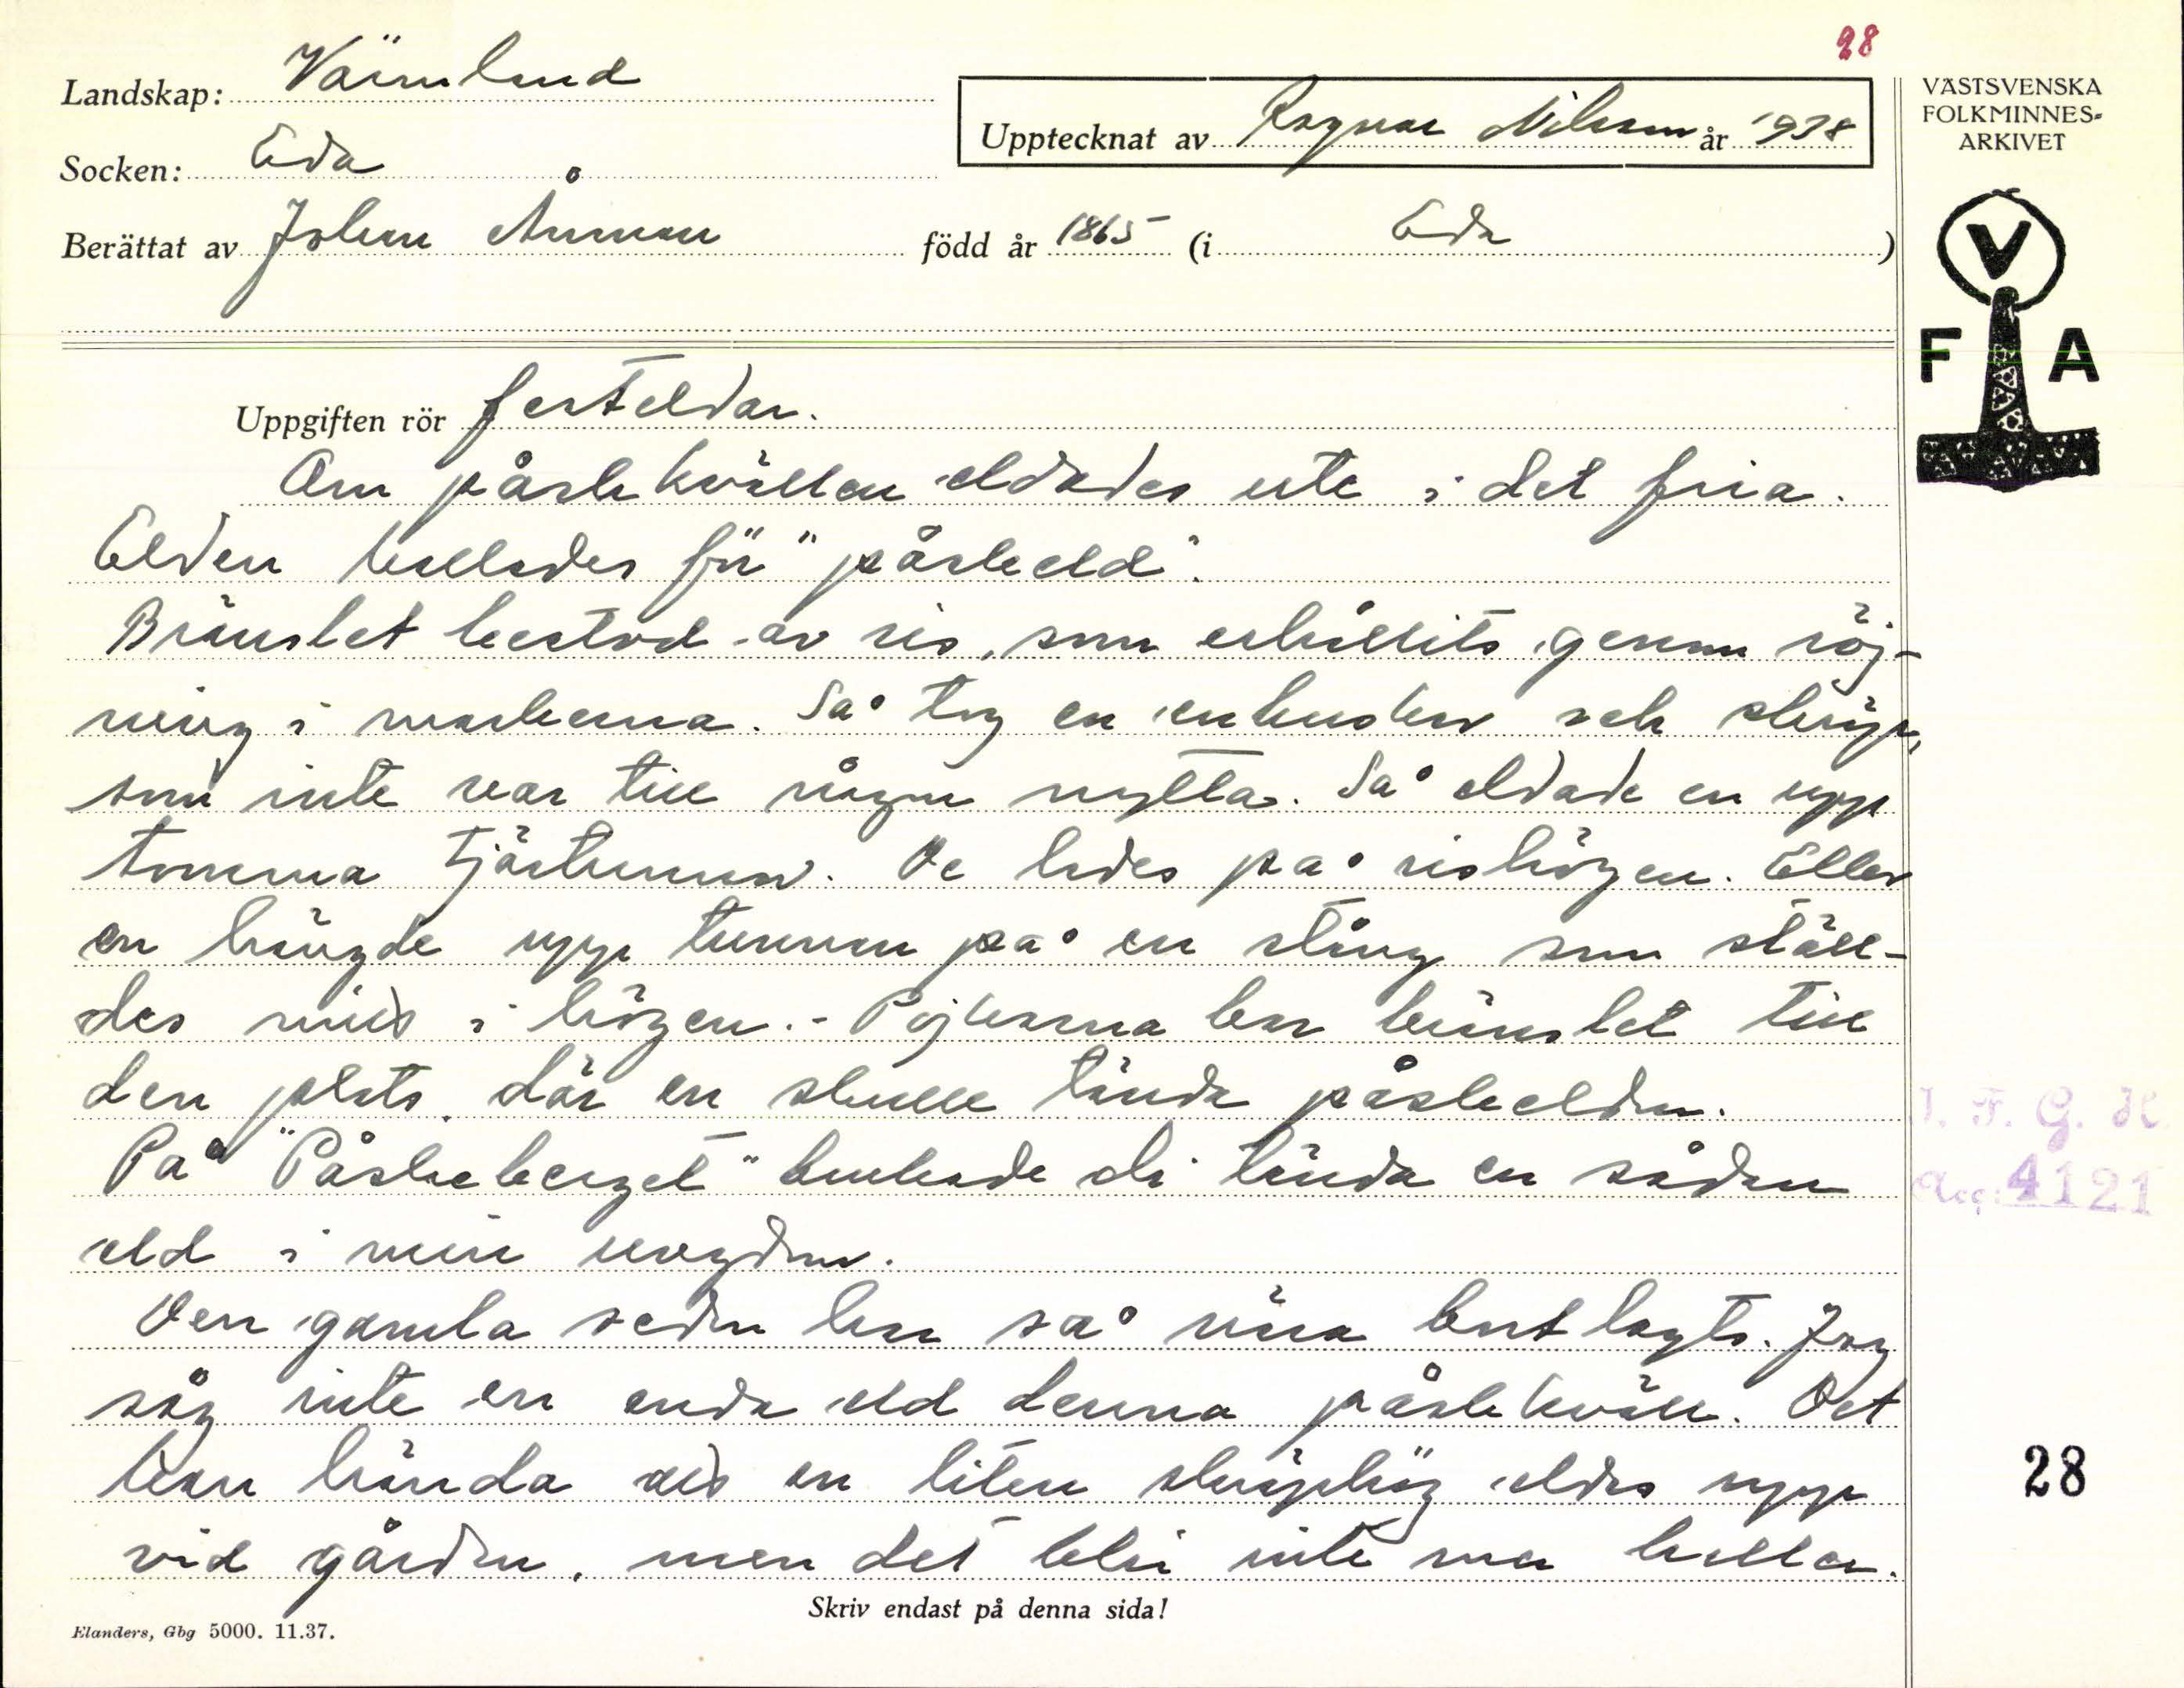 28
Landskap: Värmland
VÄSTSVENSKA
FOLKMINNES-
ARKIVET
Upptecknat av Ragnar Nilsson år 1938
Socken: Eda
Berättat av Johan Åmman född år 1865 (i Eda )
V
F A
Uppgiften rör festeldar.
Om påskkvällen eldades ute i det fria.
Elden kallades för "påskeeld".
Bränslet bestod av ris, som erhållits genom röj-
ning i markerna. Så tog en enbuskar och skräp,
som inte var till någon nytta. Så eldade en upp
tomma tjärtunnor. De lades på rishögen. Eller
en hängde upp tunnan på en stång som ställ-
des mitt i högen. - Pojkarna bar bränslet till
den plats, där en skulle tända påskeelden.
På "Påskeberget" brukade di tända en sådan
eld i min ungdom.
Den gamla seden har så nära bortlagts. Jag
såg inte en enda eld denna påskkväll. Det
kan hända att en liten skräphög eldas upp
vid gården, men det blir inte mer heller.
I. F. G. H
Acc: 4121
28
Skriv endast på denna sida!
Elanders, Gbg 5000. 11.37.